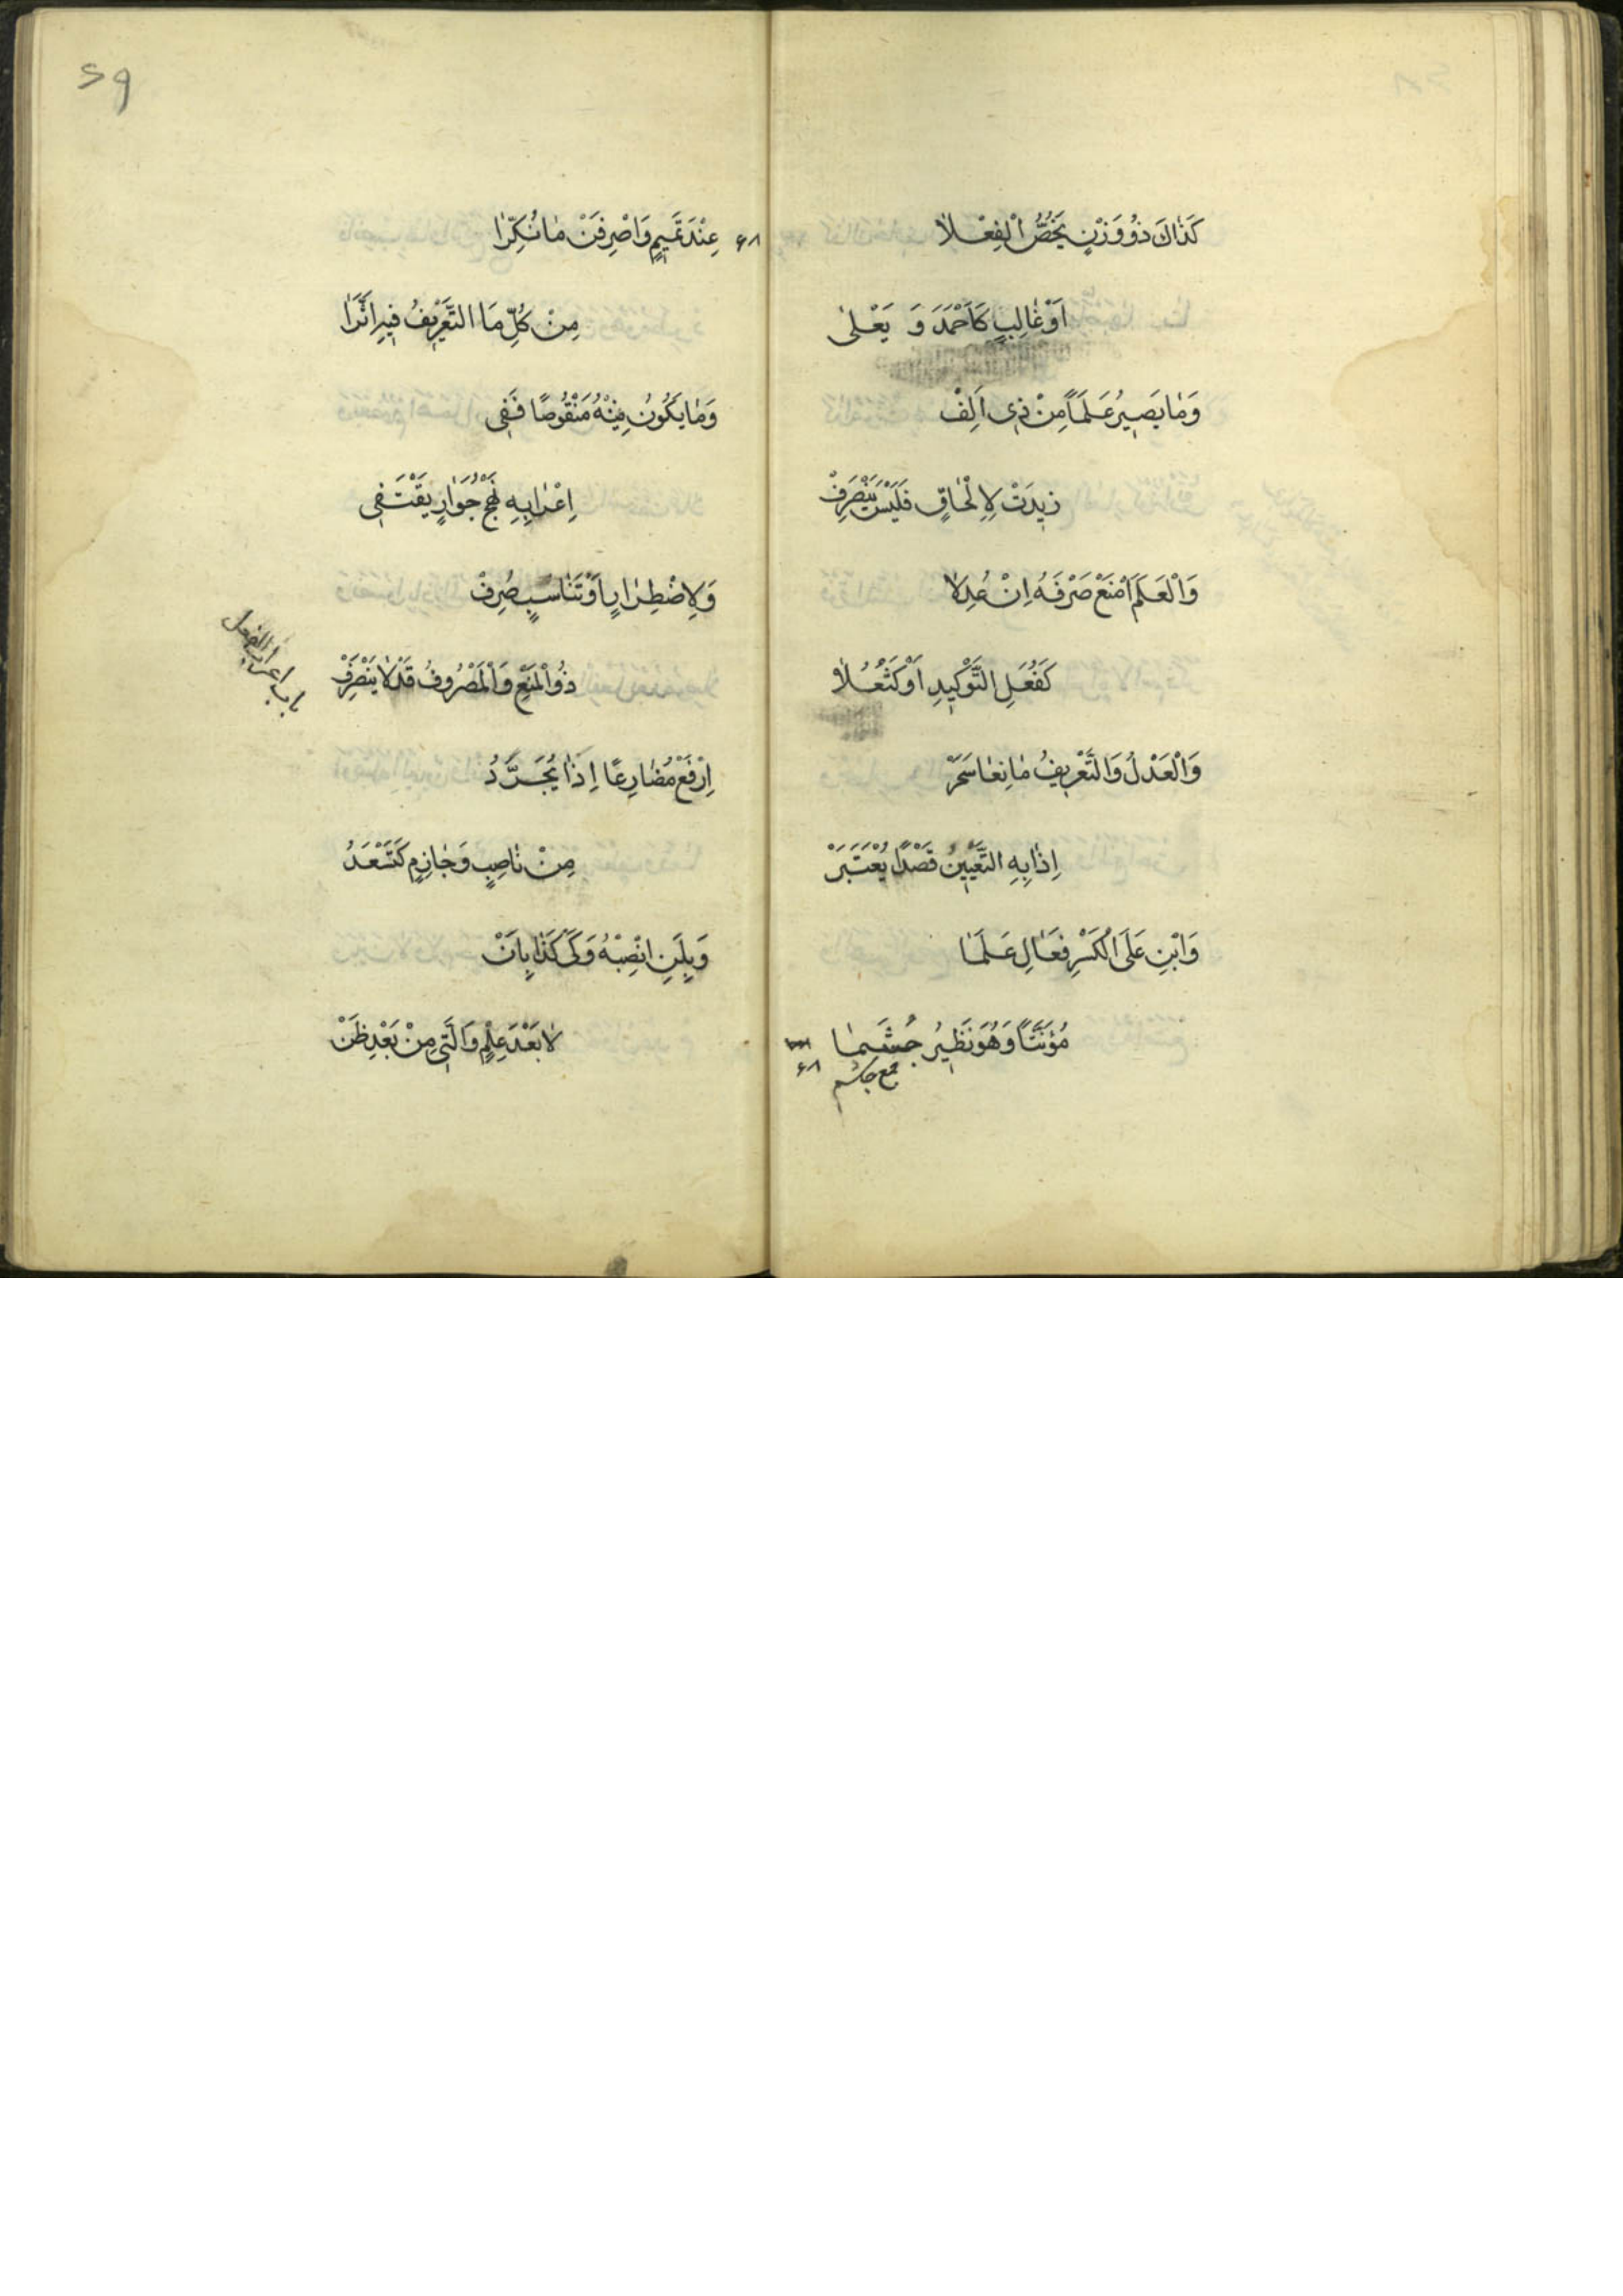 كَذَاكَ ذُو وَزْنٍ يَخُصُّ الْفِعْلَا
اَوْ غَالِبٍ كَاَحْمَدَ وَ يَعْلَى
وَمَا يَصِيرُ عَلَمًا مِنْ ذِي اَلِفْ
زِيدَتْ لِاِلْحَاقٍ فَلَيْسَ يَنْصَرِفْ
وَالْعَلَمَ امْنَعْ صَرْفَهُ اِنْ عُدِلَا
كَفُعَلِ التَّوْكِيدِ اَوْ كَثُعَلَا
وَالْعَدْلُ وَالتَّعْرِيفُ مَانِعَا سَحَرْ
اِذَا بِهِ التَّعْيِينُ قَصْدًا يُعْتَبَرْ
وَابْنِ عَلَى الْكَسْرِ فَعَالِ عَلَمَا
مُؤَنَّثًا وَهُوَ نَظِيرُ جُشَمَا
جمع جاشم
۶۸
۵۹
۶۸
عِنْدَ تَمِيمٍ وَاصْرِفَنْ مَا نُكِّرَا
مِنْ كُلِّ مَا التَّعْرِيفُ فِيهِ اَثَّرَا
وَمَا يَكُونُ مِنْهُ مَنْقُوصًا فَفِي
اِعْرَابِهِ نَهْجَ جَوَارٍ يَقْتَفِي
وَلِاضْطِرَارٍ اَوْ تَنَاسُبٍ صُرِفْ
ذُو الْمَنْعِ وَالْمَصْرُوفُ قَدْ لَا يَنْصَرِفْ
باب اعراب الفعل
اِرْفَعْ مُضَارِعًا اِذَا يُجَرَّدُ
مِنْ نَاصِبٍ وَجَازِمٍ كَتَسْعَدُ
وَبِلَنِ انْصِبْهُ وَكَيْ كَذَا بِاَنْ
لَا بَعْدَ عِلْمٍ وَالَّتِي مِنْ بَعْدِ ظَنْ